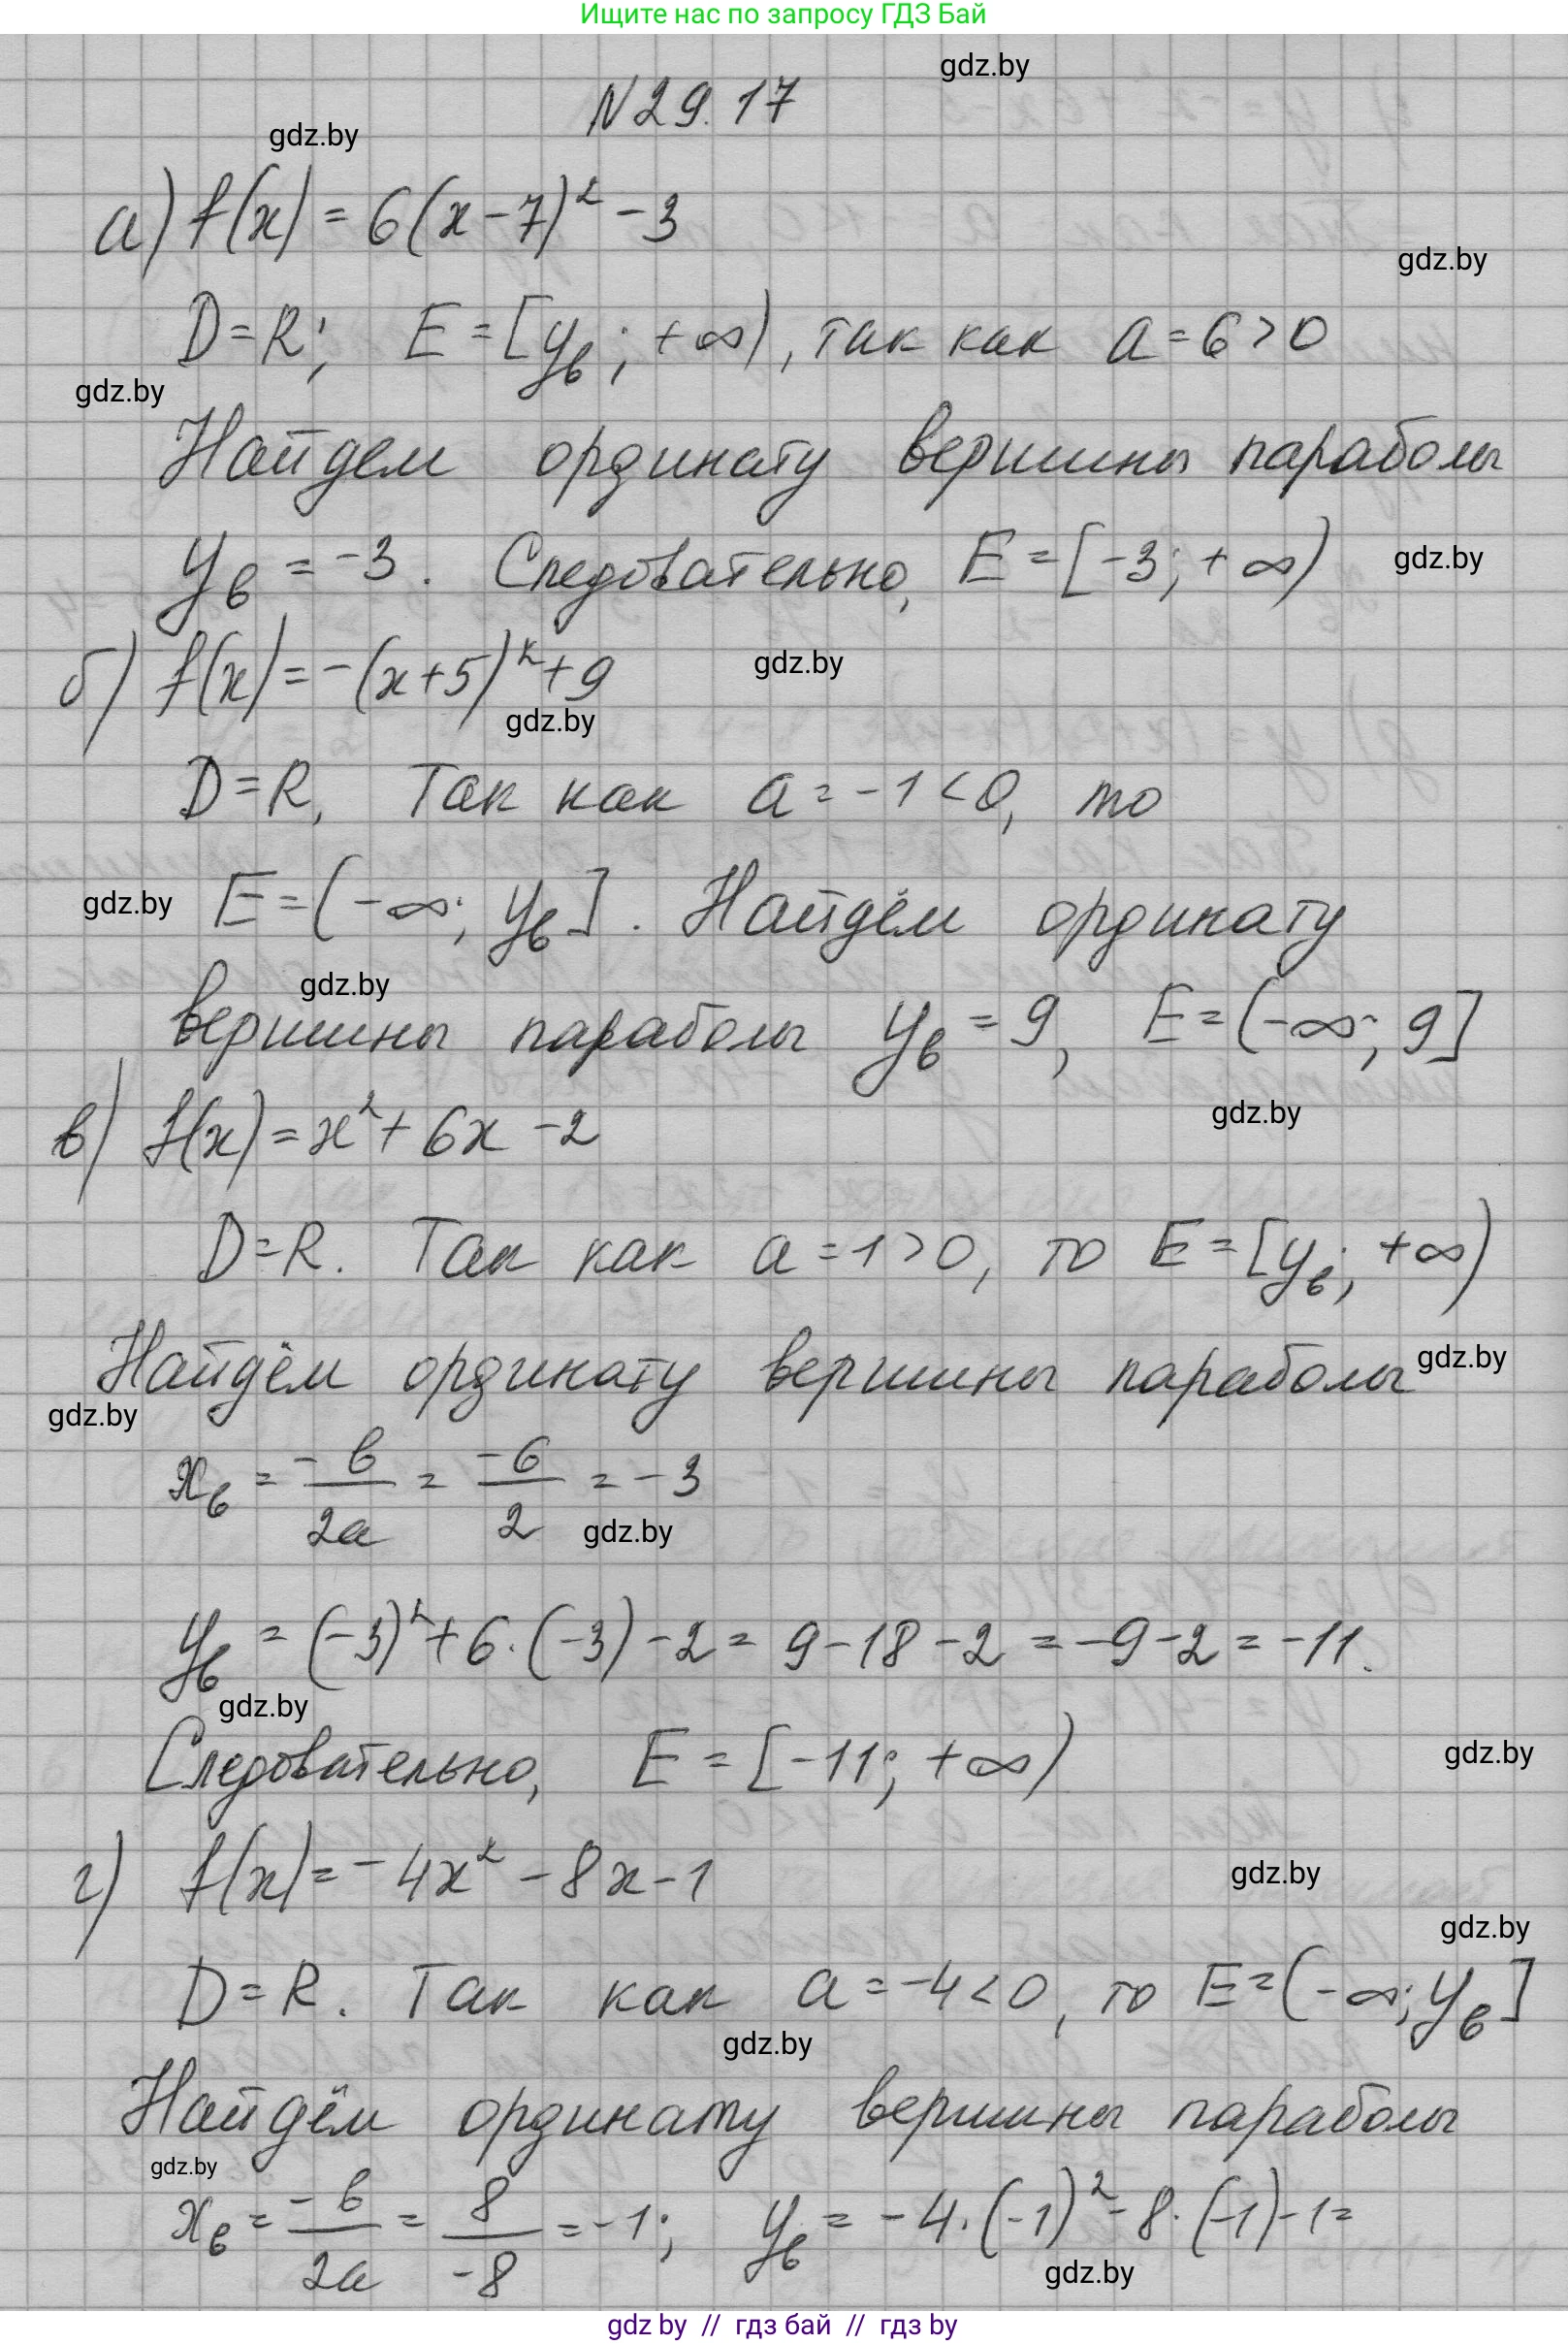 Ищите нас по запросу ГДЗ Бай
gdz.by
N 29.17
gdz.by
а) f(x) = 6(x-7)² - 3
gdz.by
D=R; E=[yв; +∞), так как a=6>0
gdz.by
Найдем ординату вершины параболы
yв = -3. Следовательно, E=[-3; +∞)
gdz.by
б) f(x) = -(x+5)² + 9
gdz.by
gdz.by
D=R, Так как a=-1<0, то
gdz.by
E=(-∞; yв]. Найдём ординату
gdz.by
вершины параболы yв = 9, E=(-∞; 9]
gdz.by
в) f(x) = x² + 6x - 2
D=R. Так как a=1>0, то E=[yв; +∞)
Найдём ординату вершины параболы
gdz.by
gdz.by
xв = -в/2a = -6/2 = -3
gdz.by
yв = (-3)² + 6·(-3) - 2 = 9 - 18 - 2 = -9 - 2 = -11.
gdz.by
Следовательно, E = [-11; +∞)
gdz.by
г) f(x) = -4x² - 8x - 1
gdz.by
gdz.by
D=R. Так как a=-4<0, то E=(-∞; yв]
gdz.by
Найдём ординату вершины параболы
gdz.by
xв = -в/2a = 8/-8 = -1; yв = -4·(-1)² - 8·(-1) - 1 =
gdz.by
gdz by // гдз бай // гдз by